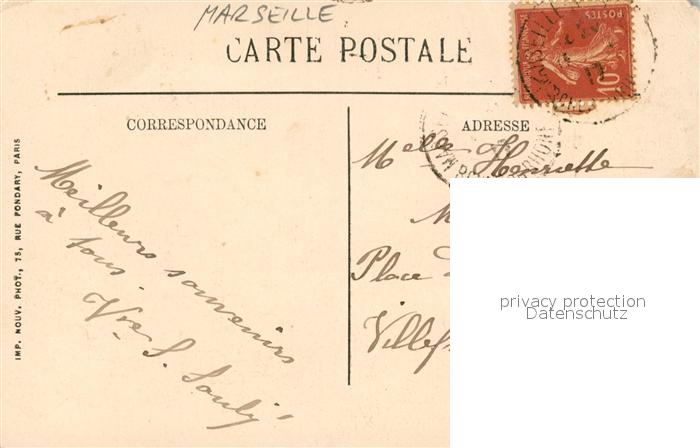 MARSEILLE
CARTE POSTALE
POSTES
10
CORRESPONDANCE
ADRESSE
Meilleurs souvenirs
à tous.
Vve S.
Henriette
M
Place
Villef
IMP. NOUV. PHOT., 75, RUE PONDARY, PARIS
privacy protection
Datenschutz